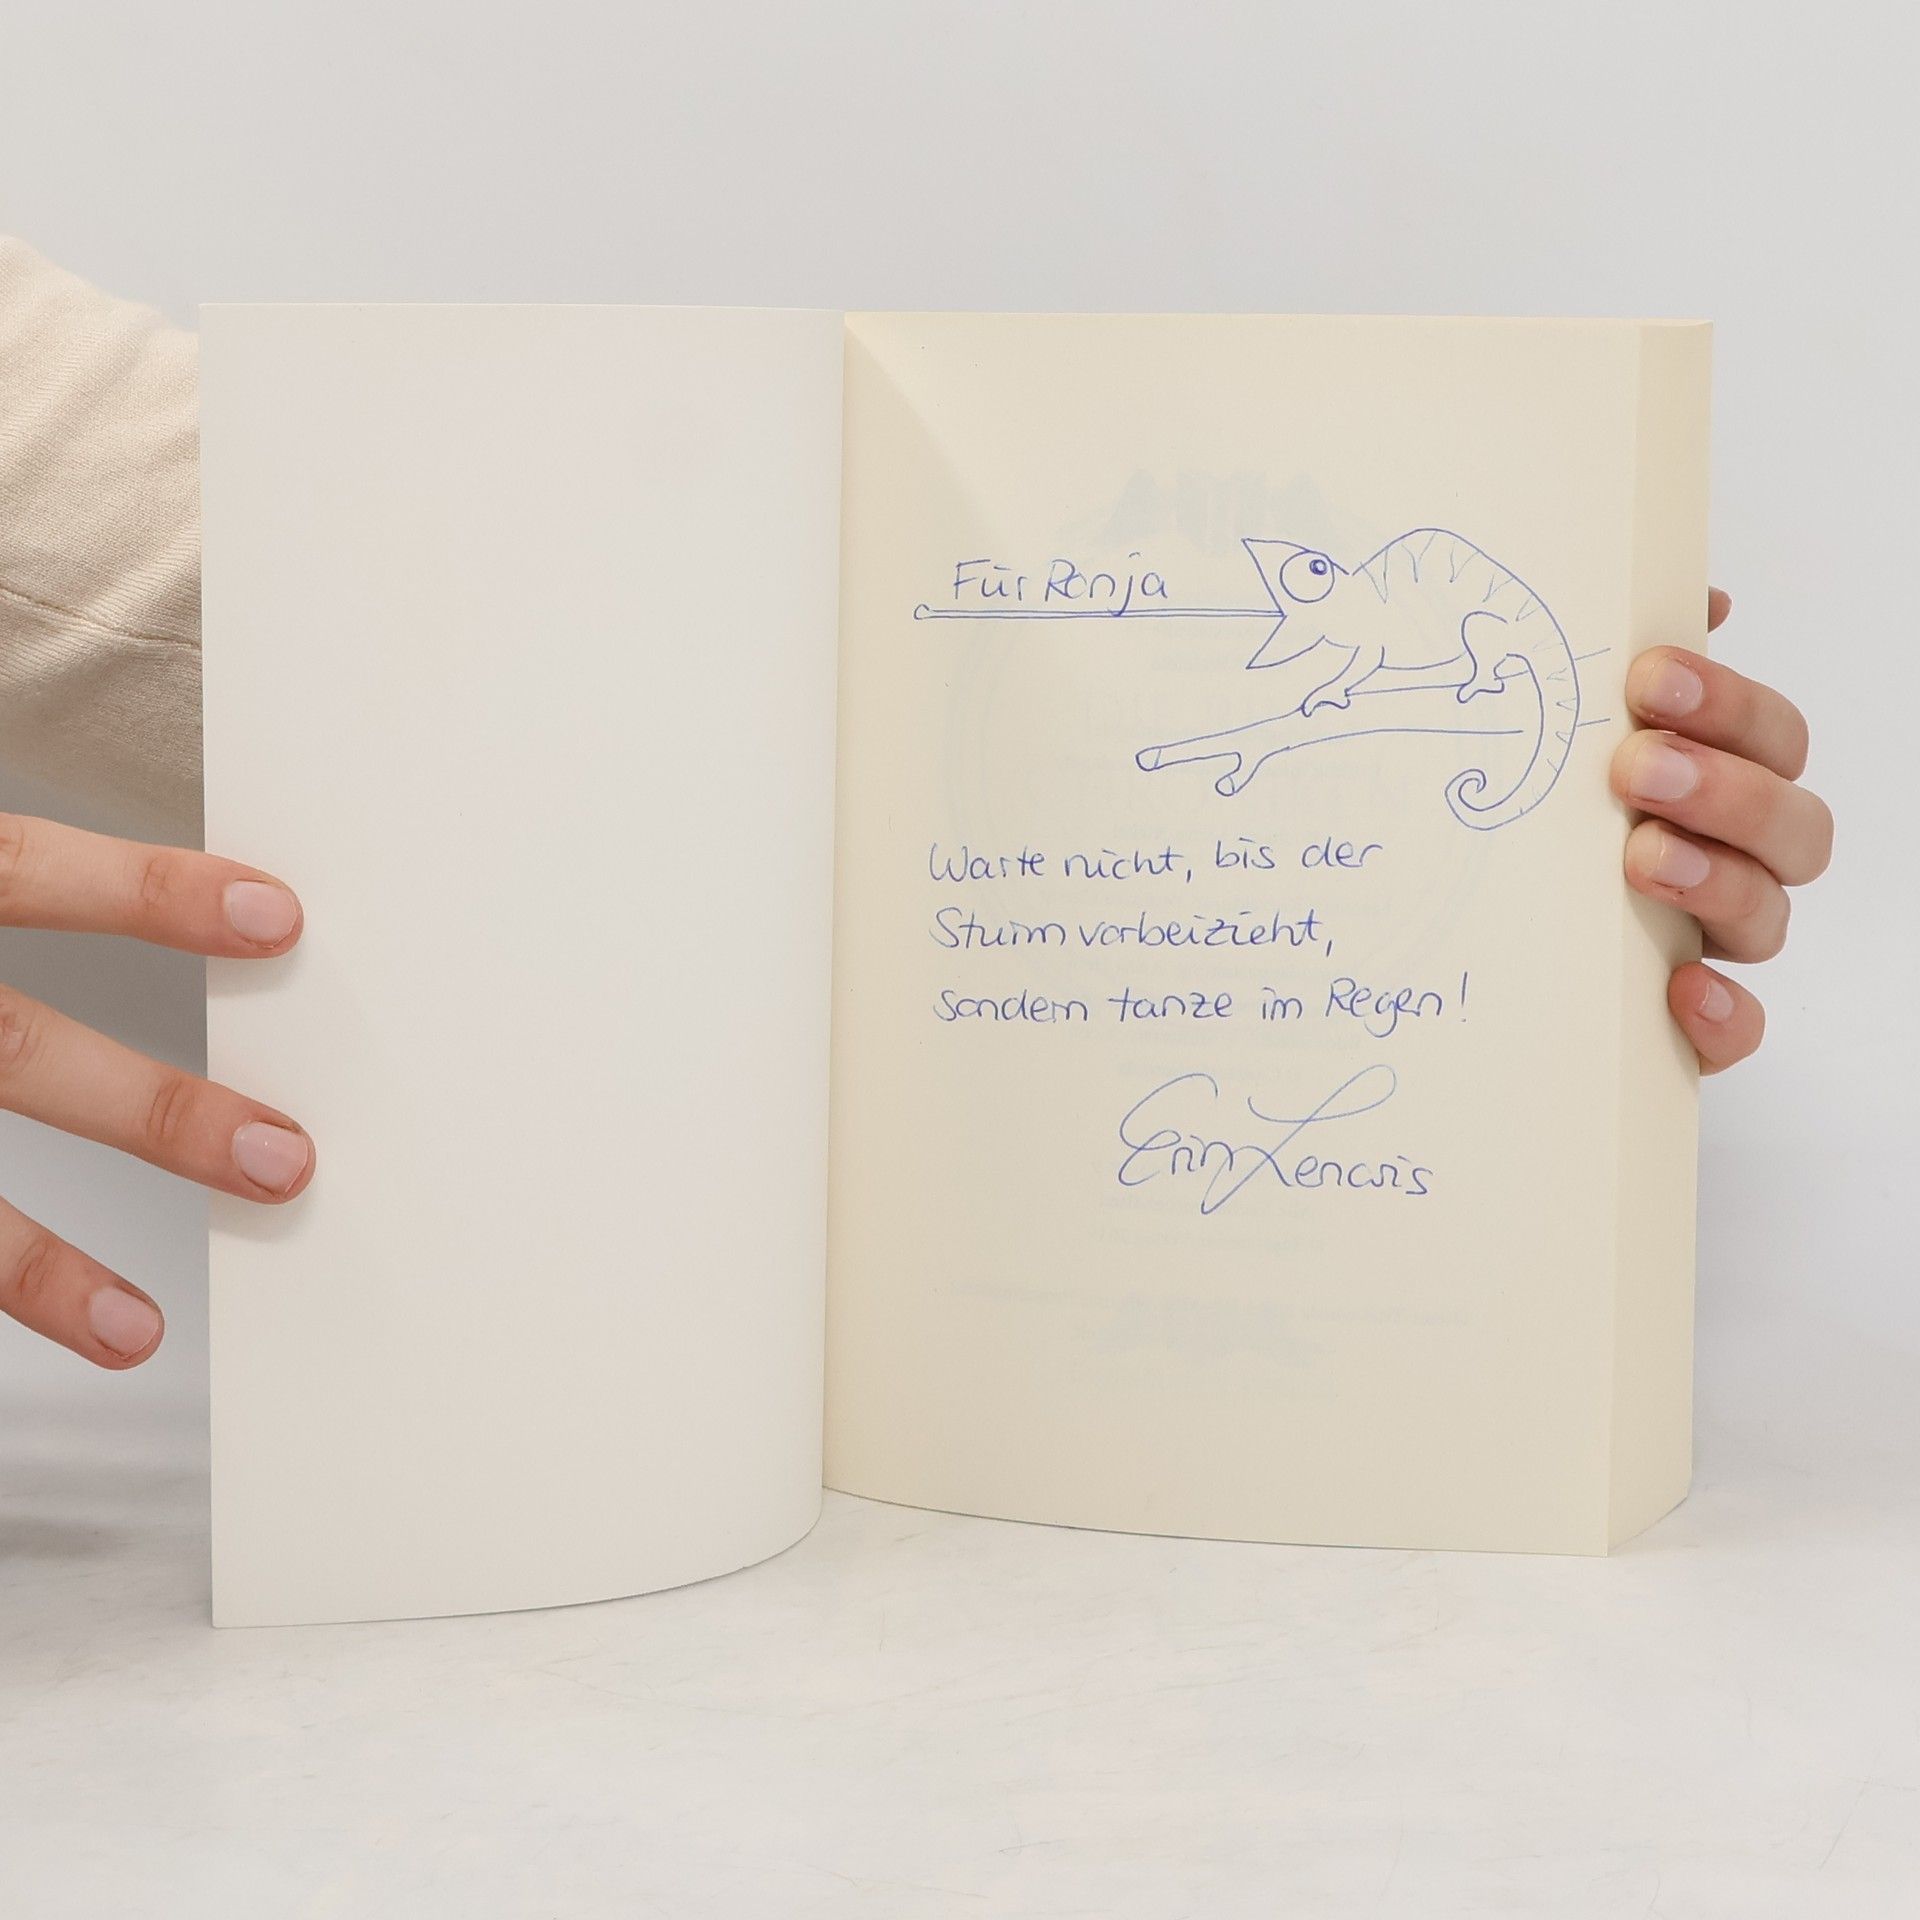 Für Ronja
Warte nicht, bis der
Sturm vorbeizieht,
sondern tanze im Regen!
Erin Lenaris